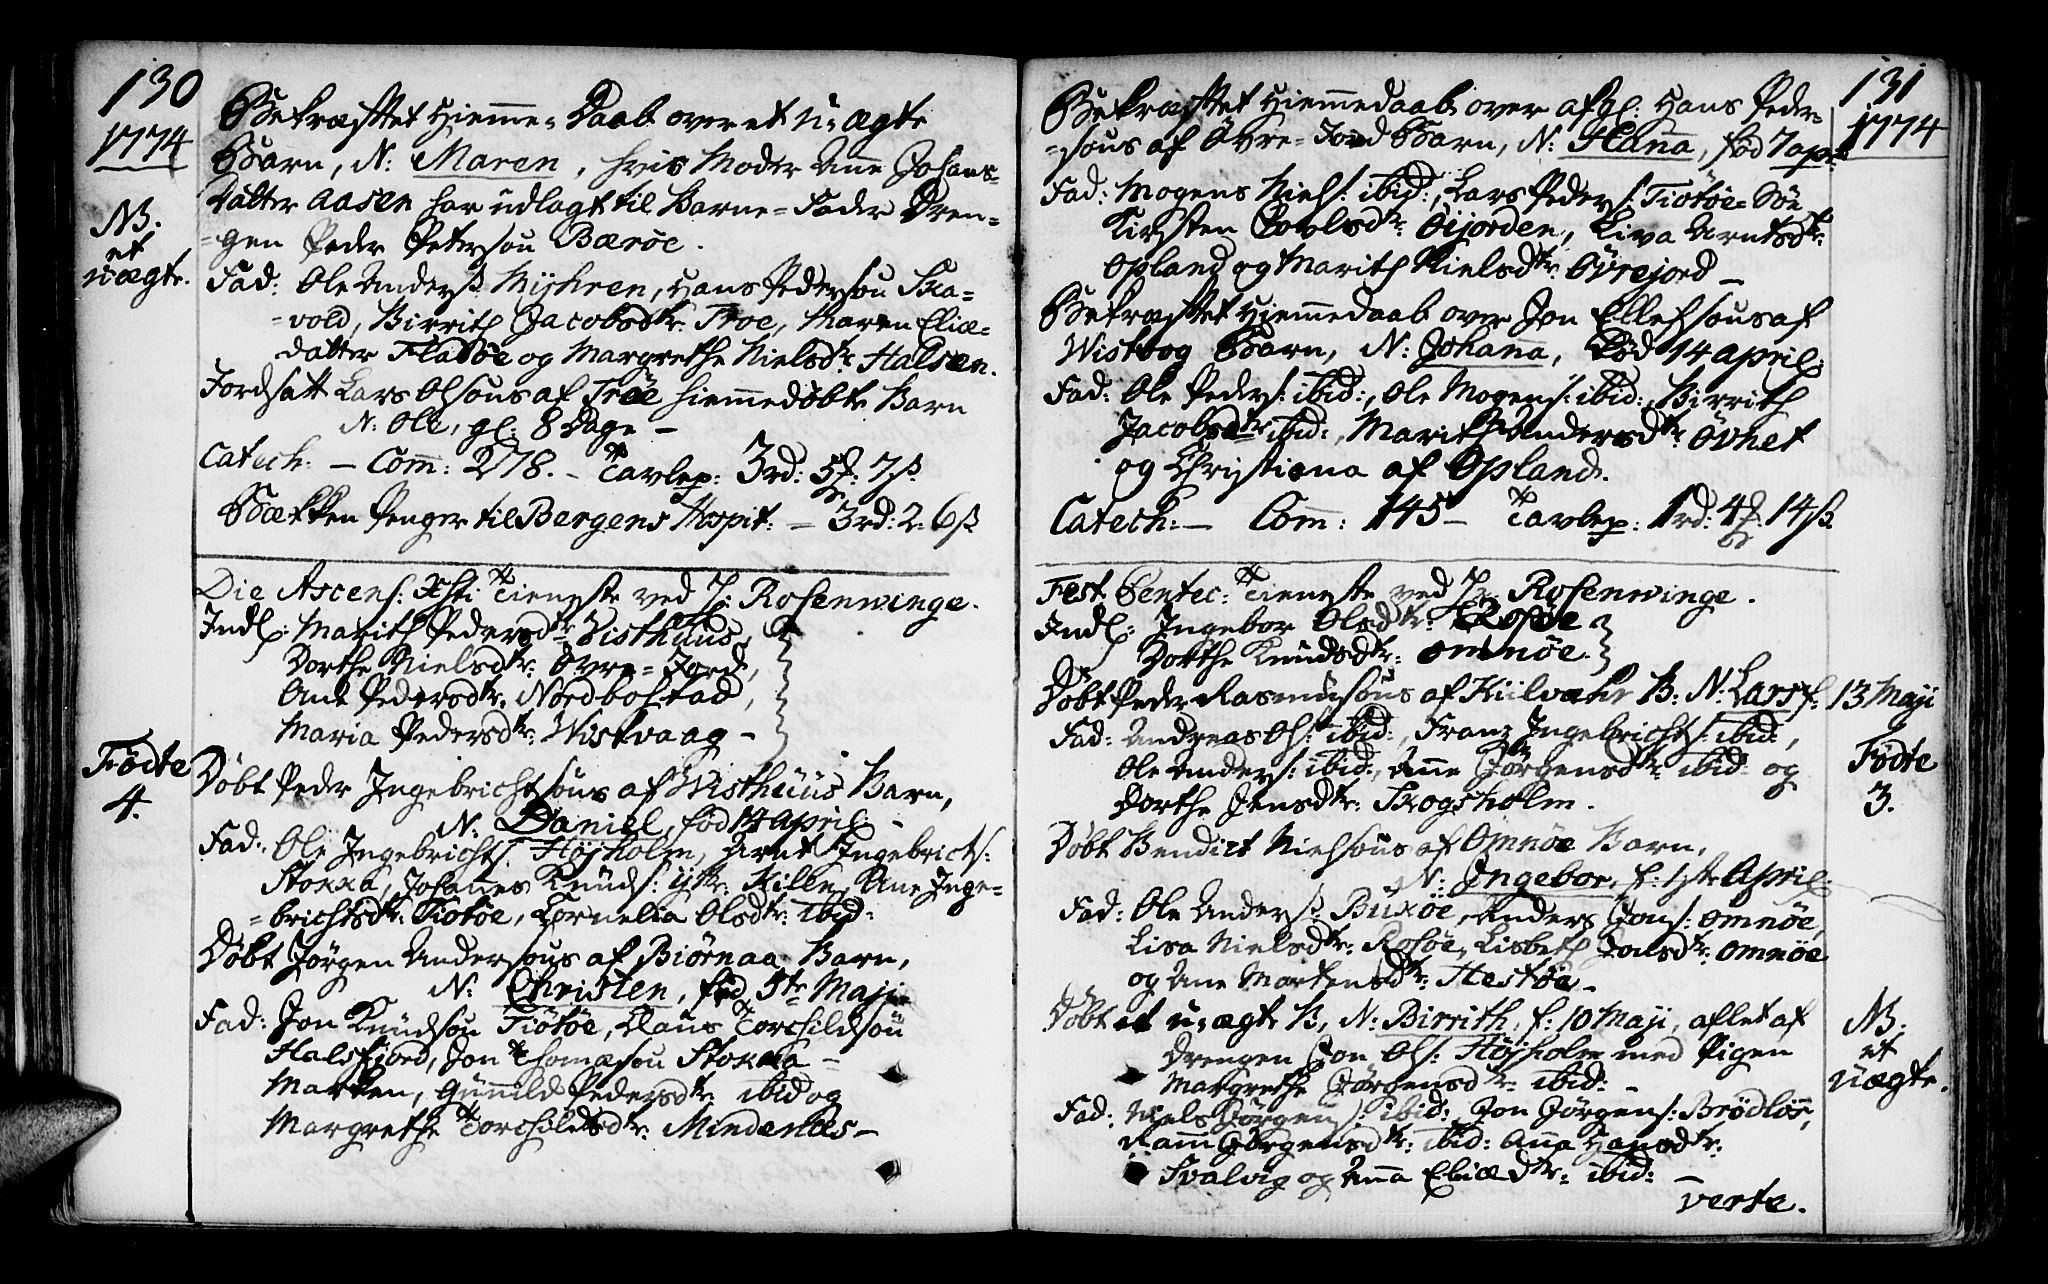 130
1774
Bekræftet Hiemme-Daab over et u-ægte
Barn, N: Maren, hvis Moder Ane Johans-
datter Aasen har udlagt til Barne-Fader Dren-
gen Peder Petersøn Bærøe.
NB.
et
uægte.
Fad: Ole Anders: Myhren, Hans Pedersøn Ska-
vold, Birrith Jacobsdtr: Troe, Maren Eliæ-
datter Flatøe og Margrethe Nielsdtr: Halsen.
Jordsatt Lars Olsøns af Trøe hiemmedøbte Barn
N: Ole, gl: 8 Dage –
Catech: – Com̄: 278. – Tavlep: 3rd: 5 7ß
Bækken Penger til Bergens Hospit: – 3rd: 2: 6ß
Die Ascens: Xsti Tieneste ved H: Rosenwinge.
Indl: Marith Pedersdtr: Visthuus,
Dorthe Nielsdtr: Øvre-Jord,
Ane Pedersdtr: Nordbostad,
Maria Pedersdtr: Wistvaag –
Fødte
4.
Døbt Peder Ingebrichtsøns af Visthuus Barn,
N: Daniel, fød 14 April –
Fad: Ole Ingebrichts: Højholm, Arnt Ingebricts:
Stokka, Johanes Knuds: ytr: Kille, Ane Inge-
brichtsdtr: Tiøtøe, Cornelia Olsdtr: ibid:
Døbt Jørgen Andersøns af Biørnaa Barn,
N: Christen, fød 5te Maji
Fad: Jon Knudsøn Tiøtøe, Claus Torchildsøn
Halsfjord, Jon Thomasøn Stokka-
Marken, Gunild Pedersdtr: ibid og
Margrethe Torchildsdtr: Mindenæs –
131
1774
Bekræftet Hiemmedaab over afgl: Hans Peder-
søns af Øvre-Jord Barn, N: Hana, fød 7 apr:
Fad: Mogens Niels: ibid:, Lars Peders: Tiøtøe-Søe
Kirsten Povlsdtr: Øijorden, Liva Arntsdtr:
Opland og Marith Nielsdtr: Øvrejord –
Bekræftet Hiemmedaab over Jon Ellefsøns af
Wistvog Barn, N: Johana, Fød 14 april:
Fad: Ole Peders: ibid:, Ole Mogens: ibid:, Birrith
Jacobsdtr: ibid:, Marith Andersdtr: Øvnet
og Christiana af Opland.
Catech: – Com̄: 145 – Tavlep: 1rd: 4 14ß
Fest Pentec: Tieneste ved Hr Rosenwinge.
Indl: Ingebor Olsdtr: Rosøe
Dorthe Knudsdtr: Omnøe.
Døbt Peder Rasmusøns af Kiilvær B: N: Lars f: 13 Maji
Fad: Andreas Ols: ibid:, Franz Ingebrichts: ibid:,
Ole Anders: ibid:, Ane Jørgensdtr: ibid: og
Dorthe Jensdtr: Skogsholm.
Fødte
3.
Døbt Bendict Nielsøns af Omnøe Barn,
N: Ingebor, f: 1ste April
Fad: Ole Anders: Buxøe, Anders Jons: Omnøe,
Lisa Nielsdtr: Rosøe, Lisbeth Jonsdtr: Omnøe
og Ane Mortensdtr: Hestøe –
NB.
et
uægte.
Døbt et u-ægte B, N: Birrith, f: 10 Maji, aflet af
Drengen Jon Ols: Højholm med Pigen
Margrethe Jørgensdtr: ibid: –
Fad: Niels Jørgens: ibid:, Jon Jørgens: Brødløs,
Jørgensdtr: ibid: Anna Hansdtr:
Svalvig og Anna Eliædtr: ibid: –
verte.